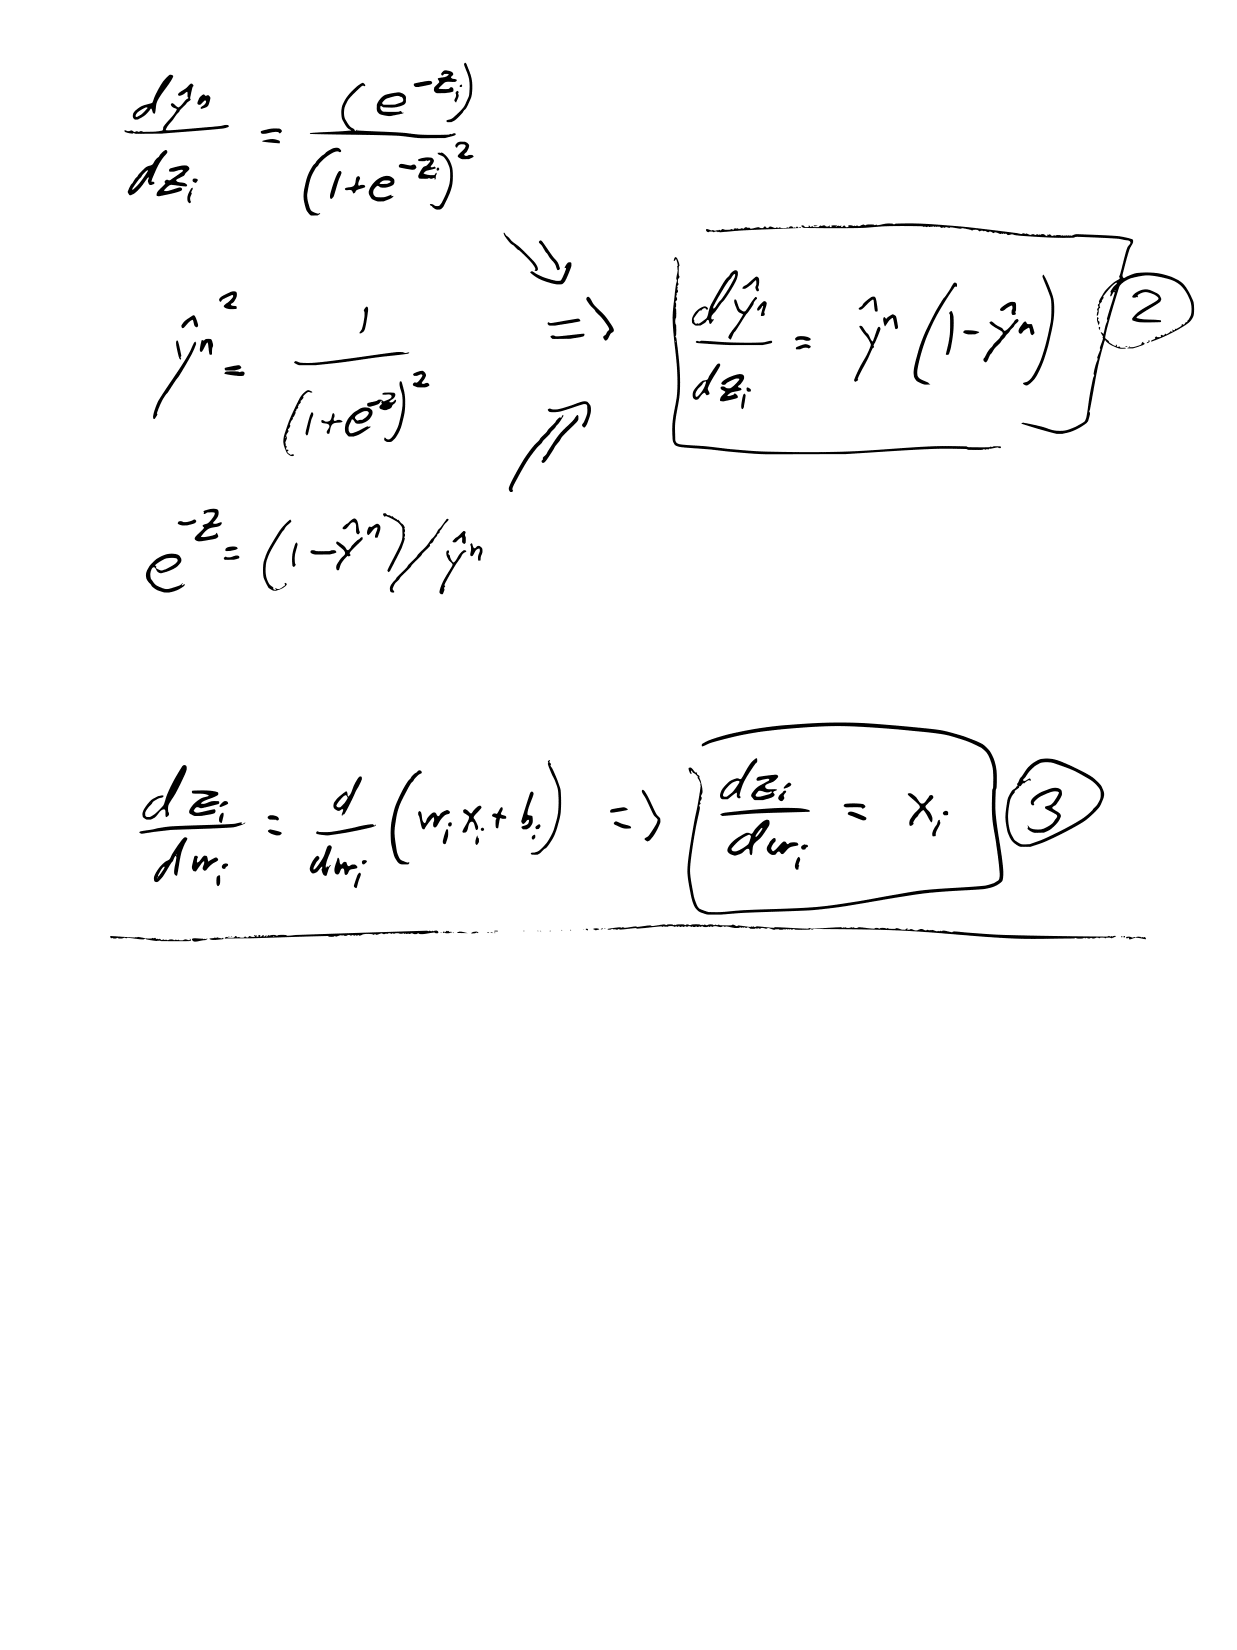 dŷⁿ/dzᵢ = (e^(-zᵢ))/(1+e^(-zᵢ))²
ŷⁿ² = 1/(1+e^(-z))² => dŷⁿ/dzᵢ = ŷⁿ(1-ŷⁿ) ②
e^(-z) = (1-ŷⁿ)/ŷⁿ
dzᵢ/dwᵢ = d/dwᵢ (wᵢxᵢ + bᵢ) => dzᵢ/dwᵢ = xᵢ ③